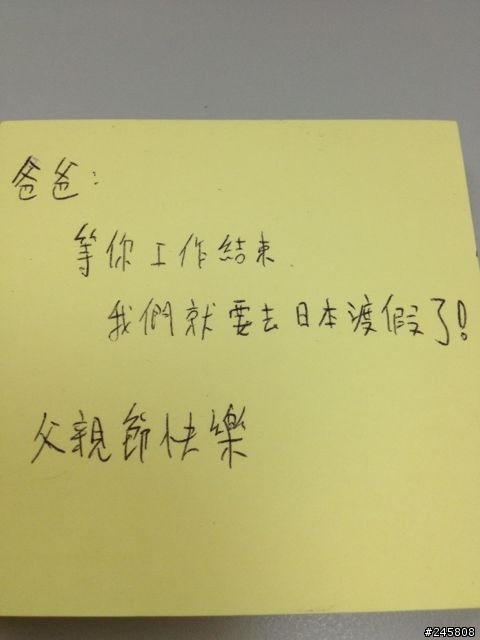 爸爸:
等你工作結束
我們就要去日本渡假了!
父親節快樂
#245808